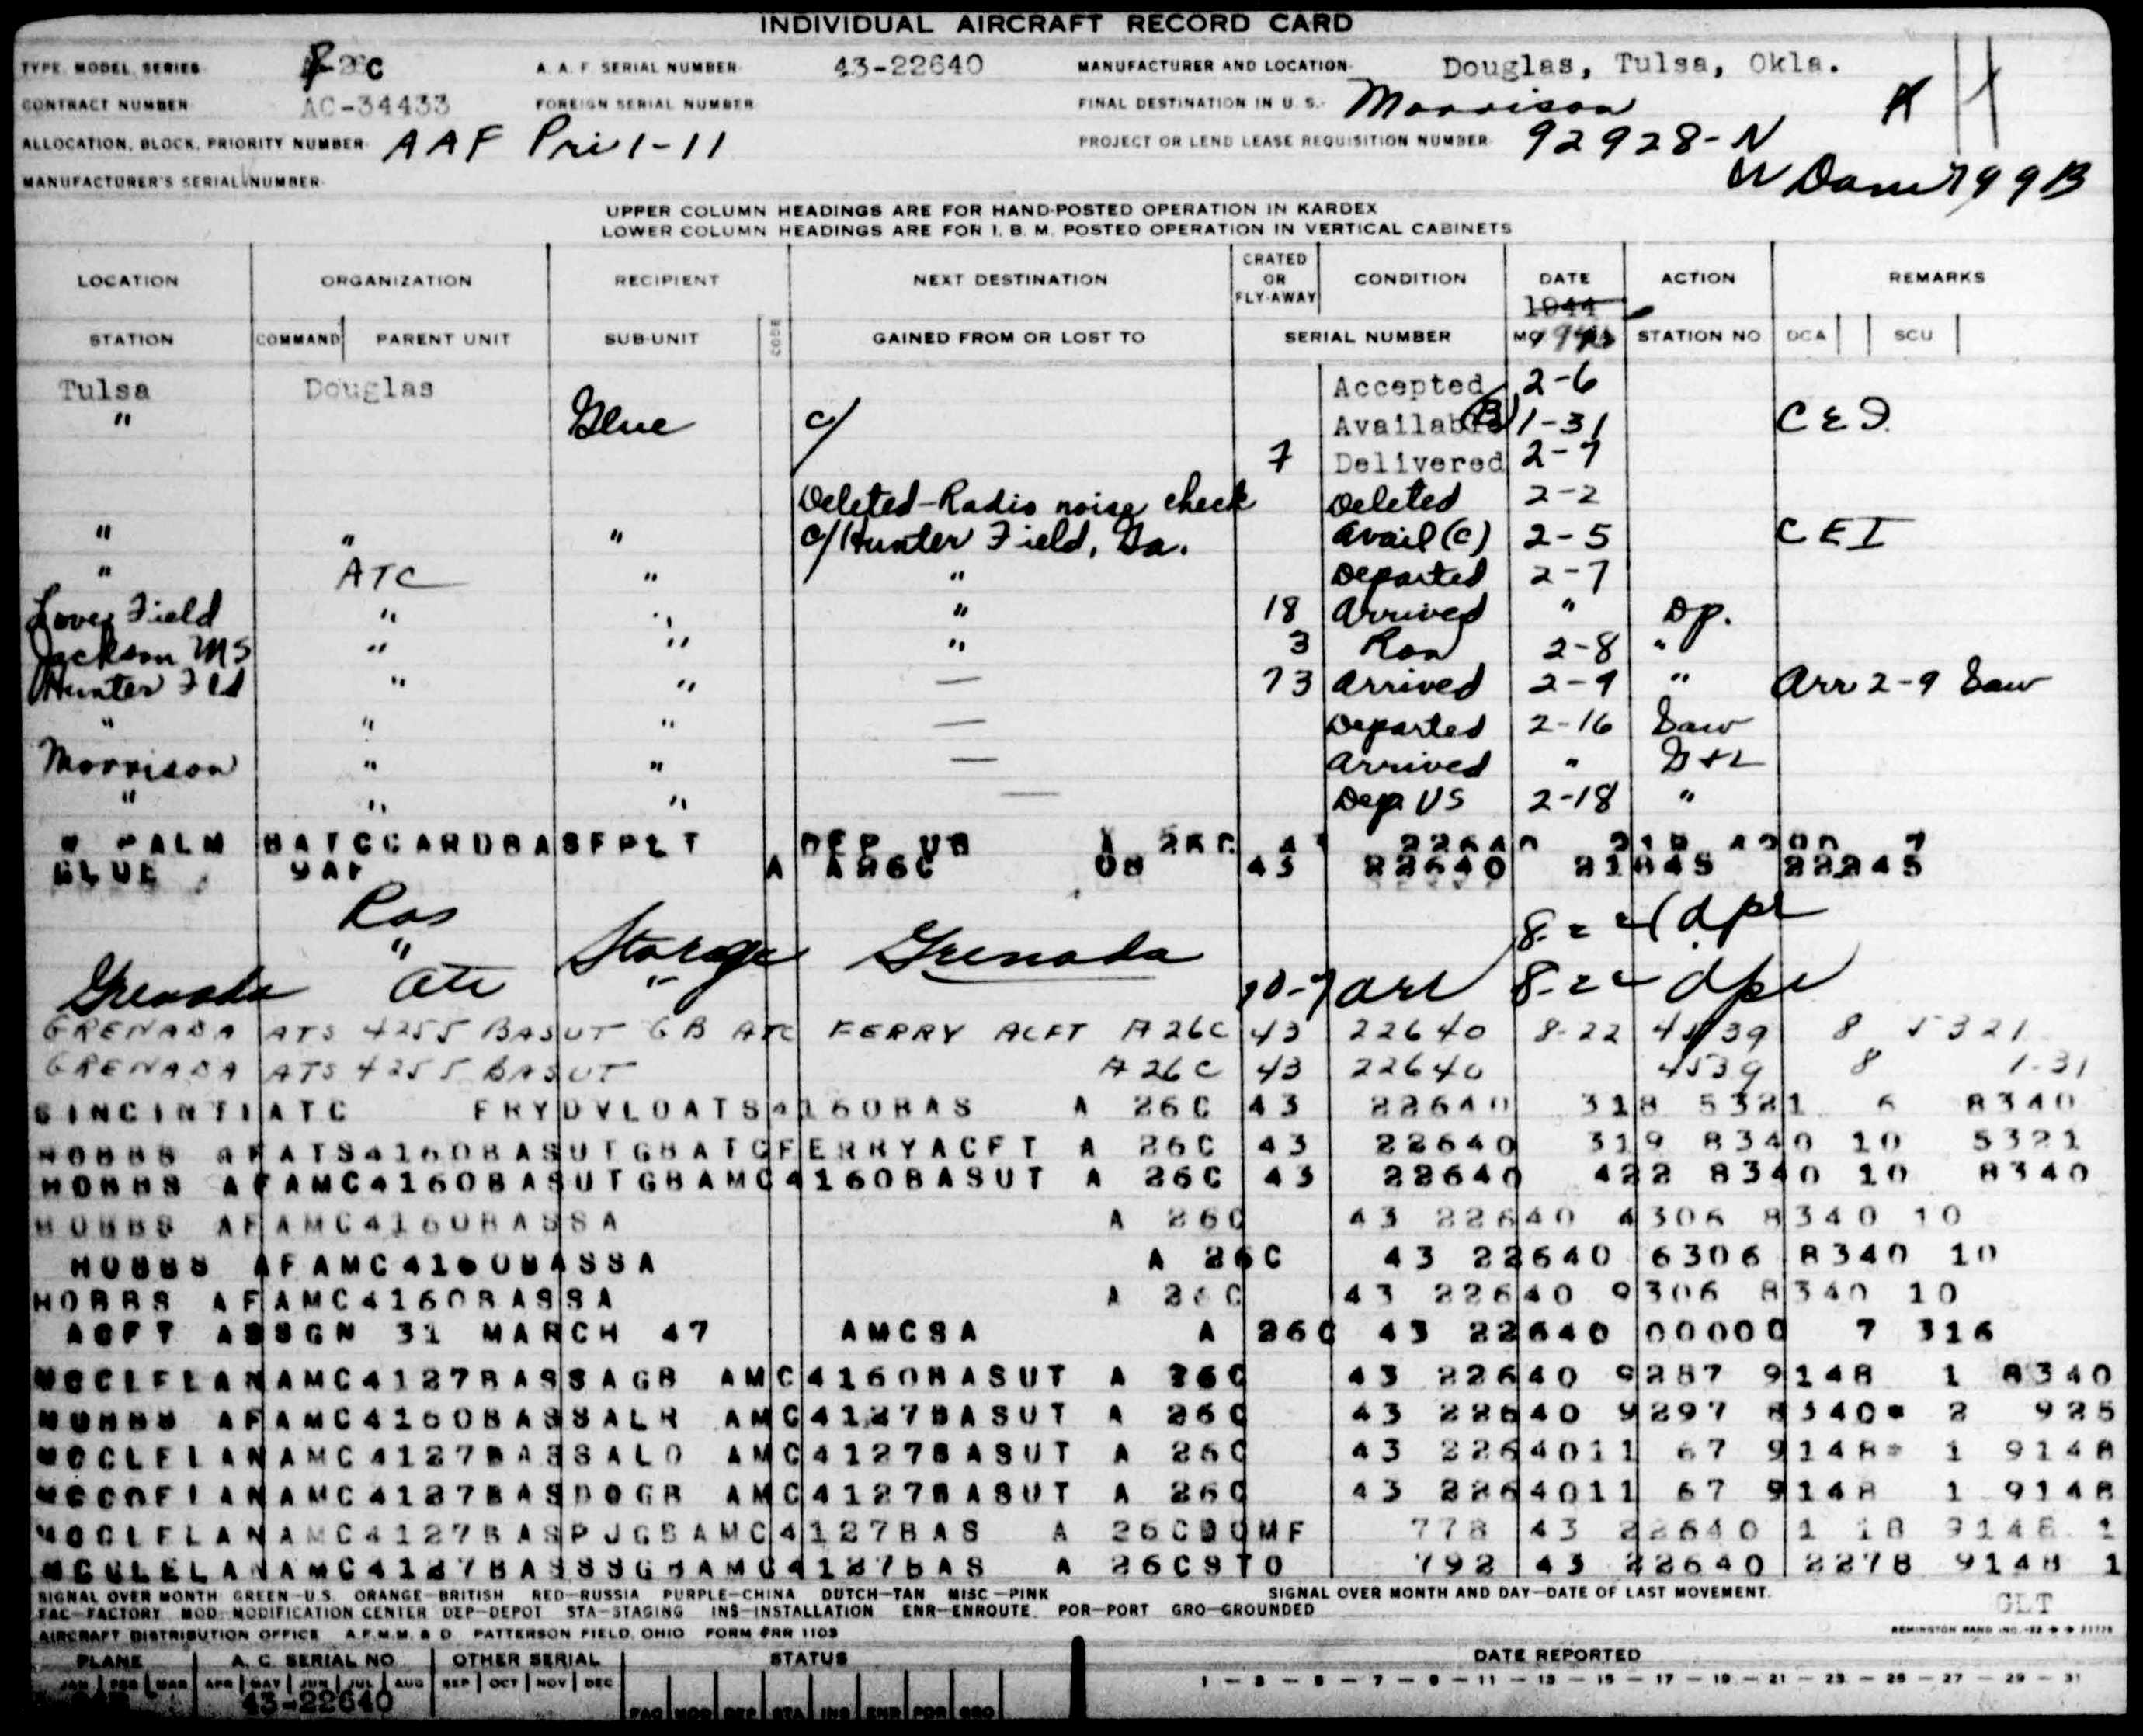 INDIVIDUAL AIRCRAFT RECORD CARD
TYPE, MODEL, SERIES 26C A. A. F. SERIAL NUMBER 43-22640 MANUFACTURER AND LOCATION Douglas, Tulsa, Okla.
CONTRACT NUMBER AC-34433 FOREIGN SERIAL NUMBER FINAL DESTINATION IN U. S. Morrison
ALLOCATION, BLOCK, PRIORITY NUMBER AAF Pri 1-11 PROJECT OR LEND LEASE REQUISITION NUMBER 92928-N
MANUFACTURER'S SERIAL NUMBER
UPPER COLUMN HEADINGS ARE FOR HAND-POSTED OPERATION IN KARDEX
LOWER COLUMN HEADINGS ARE FOR I. B. M. POSTED OPERATION IN VERTICAL CABINETS
LOCATION ORGANIZATION RECIPIENT NEXT DESTINATION CRATED OR FLY-AWAY CONDITION DATE ACTION REMARKS
1944
STATION COMMAND PARENT UNIT SUB-UNIT CODE GAINED FROM OR LOST TO SERIAL NUMBER STATION NO DCA SCU
Tulsa Douglas Accepted 2-6
" Glue c/ Available (B) 1-31
7 Delivered 2-7
Deleted-Radio noise check Deleted 2-2
" " " c/ Hunter Field, Ga. Avail (C) 2-5 CEI
" ATC " " Departed 2-7
Love Field " " " 18 Arrived " Dp.
Jackson MS " " " 3 Ron 2-8 "
Hunter Fld " " — 73 Arrived 2-9 " Arr 2-9 Saw
" " " — Departed 2-16 Saw
Morrison " " — Arrived "
" " " — Dep US 2-18 "
PALM BATCCARDBASFPLT DEP 26C 22640
GLUE A A26C 08 43 22640 21845 22245
Storage Grenada dpr
Grenada " arr dpr
GRENADA ATS 4255 BASUT GB ATC FERRY ACFT A26C 43 22640 8-22 4539 8 5321
GRENADA ATS 4255 BASUT A26C 43 22640 4539 8 1-31
CINCINTIATC FRYDVLOATS4160BAS A 26C 43 22640 318 5321 6 8340
HOBBS AFATS4160BASUTGBATCFERRYACFT A 26C 43 22640 319 8340 10 5321
HOBBS AFAMC4160BASUTGBAMC4160BASUT A 26C 43 22640 422 8340 10 8340
HOBBS AFAMC4160BASSA A 26C 43 22640 4306 8340 10
HOBBS AFAMC4160BASSA A 26C 43 22640 6306 8340 10
HOBBS AFAMC4160BASSA A 26C 43 22640 9306 8340 10
ACFT ASSGN 31 MARCH 47 AMCSA A 26C 43 22640 00000 7 316
MCCLELANAMC4127BASSAGB AMC4160BASUT A 26C 43 22640 9287 9148 1 8340
HOBBS AFAMC4160BASSALR AMC4127BASUT A 26C 43 22640 9297 8340* 2 925
MCCLELANAMC4127BASSALO AMC4127BASUT A 26C 43 2264011 67 9148* 1 9148
AMC4127BASDOGB AMC4127BASUT A 26C 43 2264011 67 9148 1 9148
MCCLELANAMC4127BASPJGBAMC4127BAS A 26CDOMF 778 43 22640 1 18 9148 1
MCCLELANAMC4127BASSSGBAMC4127BAS A 26CSTO 792 43 22640 2278 9148 1
SIGNAL OVER MONTH GREEN—U.S. ORANGE—BRITISH RED—RUSSIA PURPLE—CHINA DUTCH—TAN MISC.—PINK SIGNAL OVER MONTH AND DAY—DATE OF LAST MOVEMENT.
FAC—FACTORY MOD—MODIFICATION CENTER DEP—DEPOT STA—STAGING INS—INSTALLATION ENR—ENROUTE POR—PORT GRO—GROUNDED GLT
AIRCRAFT DISTRIBUTION OFFICE A.F.M.M. & D. PATTERSON FIELD, OHIO FORM #RR 1103 REMINGTON RAND INC.
PLANE A. C. SERIAL NO OTHER SERIAL STATUS DATE REPORTED
JAN FEB MAR APR MAY JUN JUL AUG SEP OCT NOV DEC 1 — 3 — 5 — 7 — 9 — 11 — 13 — 15 — 17 — 19 — 21 — 23 — 25 — 27 — 29 — 31
43-22640
FAC MOD DEP STA INS ENR POR GRO